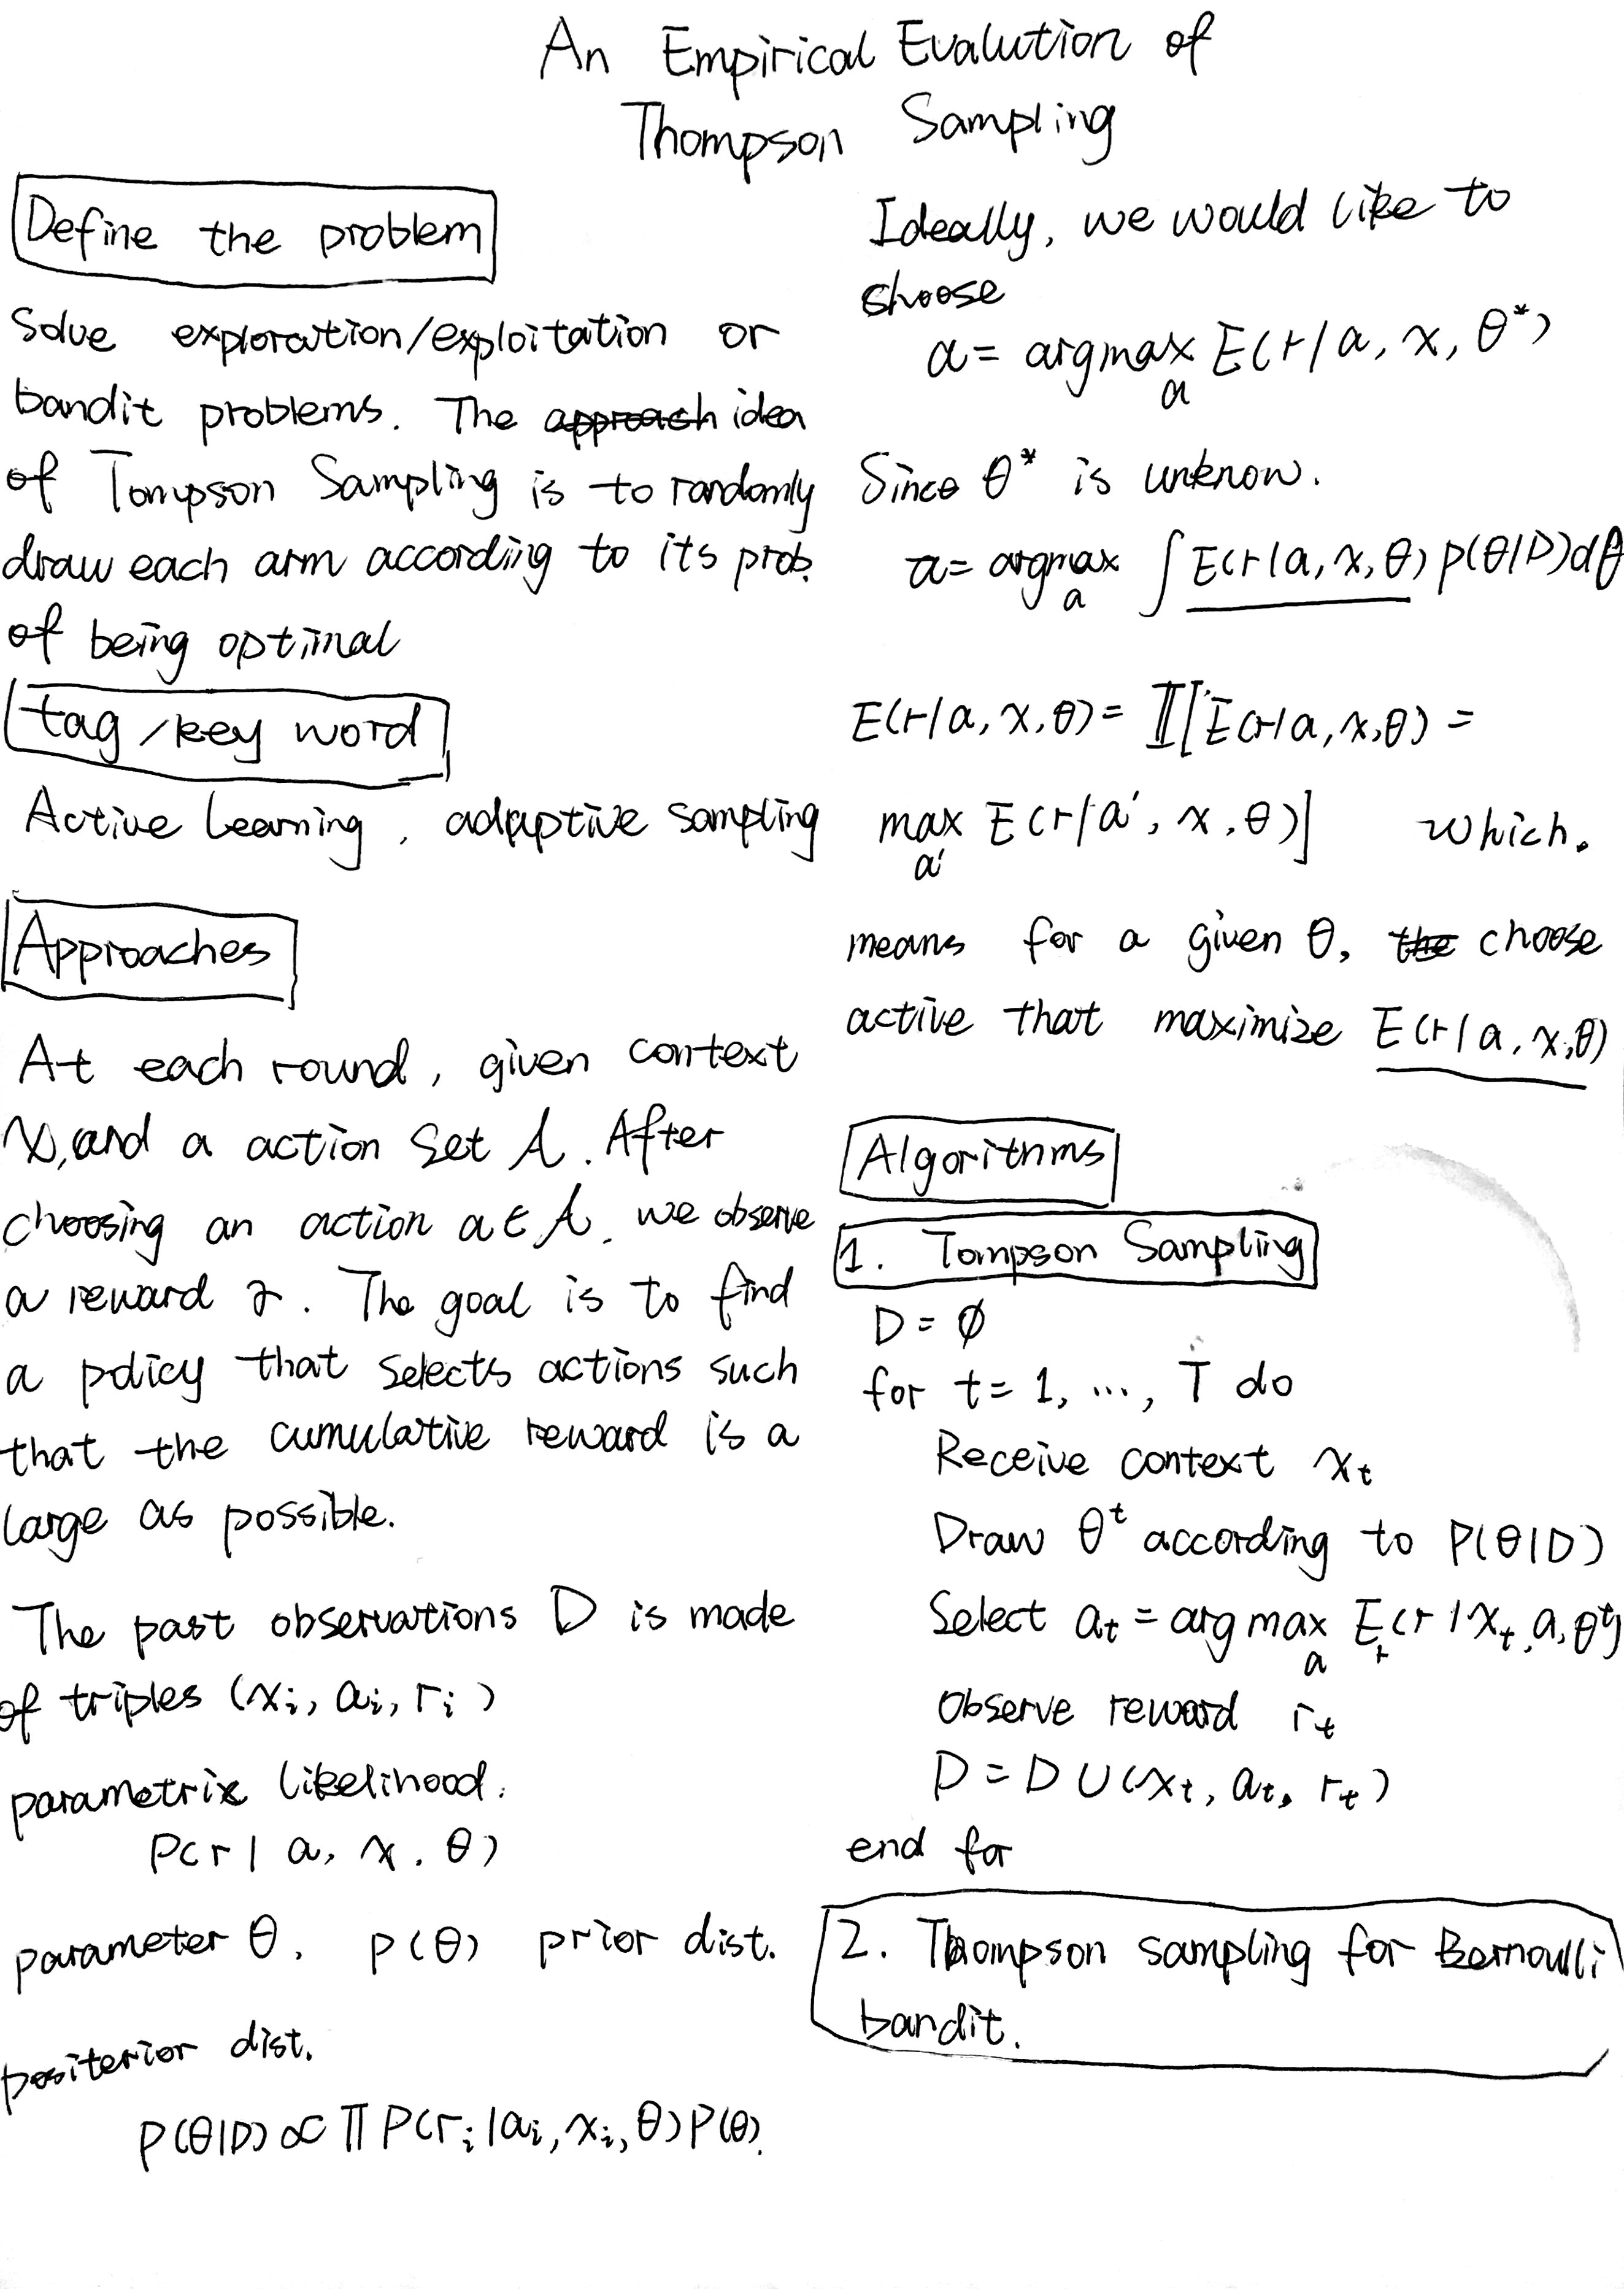 An Empirical Evalution of
Thompson Sampling
Define the problem
Solve exploration/exploitation or
bandit problems. The approach idea
of Tompson Sampling is to randomly
draw each arm according to its prob.
of being optimal
tag/key word
Active Learning, adaptive sampling
Approaches
At each round, given context
x, and a action set A. After
choosing an action a∈A, we observe
a reward r. The goal is to find
a policy that selects actions such
that the cumulative reward is a
large as possible.
The past observations D is made
of triples (xi, ai, ri)
parametric likelihood:
P(r| a, x, θ)
parameter θ. P(θ) prior dist.
positerior dist.
P(θ|D) ∝ Π P(ri|ai, xi, θ)P(θ).
Ideally, we would like to
choose
a = argmax E(r|a, x, θ*)
a
Since θ* is unknow.
a = argmax ∫ E(r|a, x, θ) p(θ|D)dθ
a
E(r|a, x, θ) = 𝕀[E(r|a, x, θ) =
max E(r|a', x, θ)] which.
a'
means for a given θ, the choose
active that maximize E(r|a, x, θ)
Algorithms
1. Tompson Sampling
D = ∅
for t = 1, ..., T do
Receive context xt
Draw θ^t according to P(θ|D)
Select at = arg max Er(r|xt, a, θ^t)
a
Observe reward rt
D = D ∪ (xt, at, rt)
end for
2. Thompson sampling for Bernoulli
bandit.